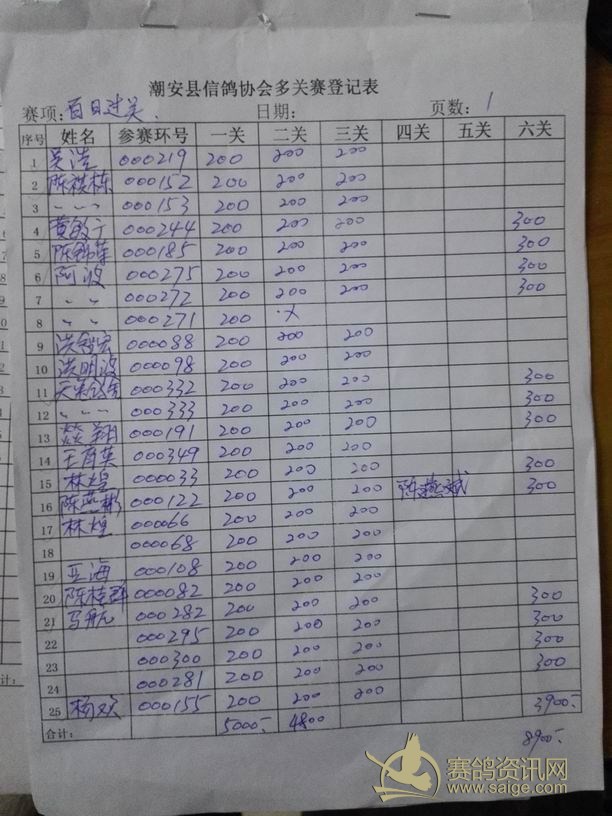 潮安县信鸽协会多关赛登记表
赛项:百日过关. 日期: 页数:1
序号 姓名 参赛环号 一关 二关 三关 四关 五关 六关
1 吴浩 000219 200 200 200
2 陈祺栋 000152 200 200 200
3 〃 〃 〃 000153 200 200 200
4 000244 200 200 200 300
5 000185 200 200 200 300
6 阿波 000275 200 200 200 300
7 〃 〃 000272 200 200 200 300
8 〃 〃 000271 200 .X
9 000088 200 200 200
10 洪明波 000098 200 200 200
11 000332 200 200 200 300
12 〃 〃 〃 000333 200 200 200 300
13 000191 200 200 200 300
14 王育英 000349 200 200 200
15 林煌 000033 200 200 200 300
16 陈燕彬 000122 200 200 200 陈燕斌 300
17 林煌 000066 200 200 200
18 000068 200 200 200
19 亚海 000108 200 200 200
20 陈桂群 000082 200 200 200
21 马航 000282 200 200 200 300
22 000295 200 200 200 300
000300 200 200 200 300
24 000281 200 200 200 300
25 杨欢 000155 200 200 200
合计: 5000- 4800 3900-
8900-
计:
赛鸽资讯网
www.saige.com